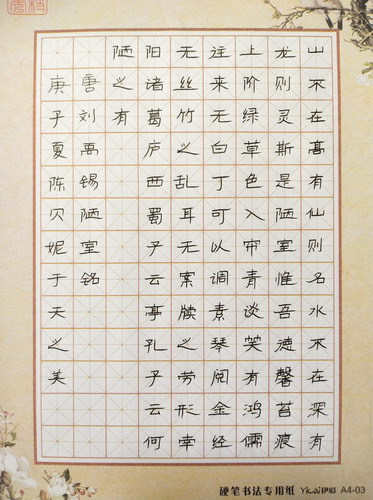 山不在高有仙则名水不在深有
龙则灵斯是陋室惟吾德馨苔痕
上阶绿草色入帘青谈笑有鸿儒
往来无白丁可以调素琴阅金经
无丝竹之乱耳无案牍之劳形南
阳诸葛庐西蜀子云亭孔子云何
陋之有
唐刘禹锡陋室铭
庚子夏陈贝妮于天之美
硬笔书法专用纸 伊彩 A4-03